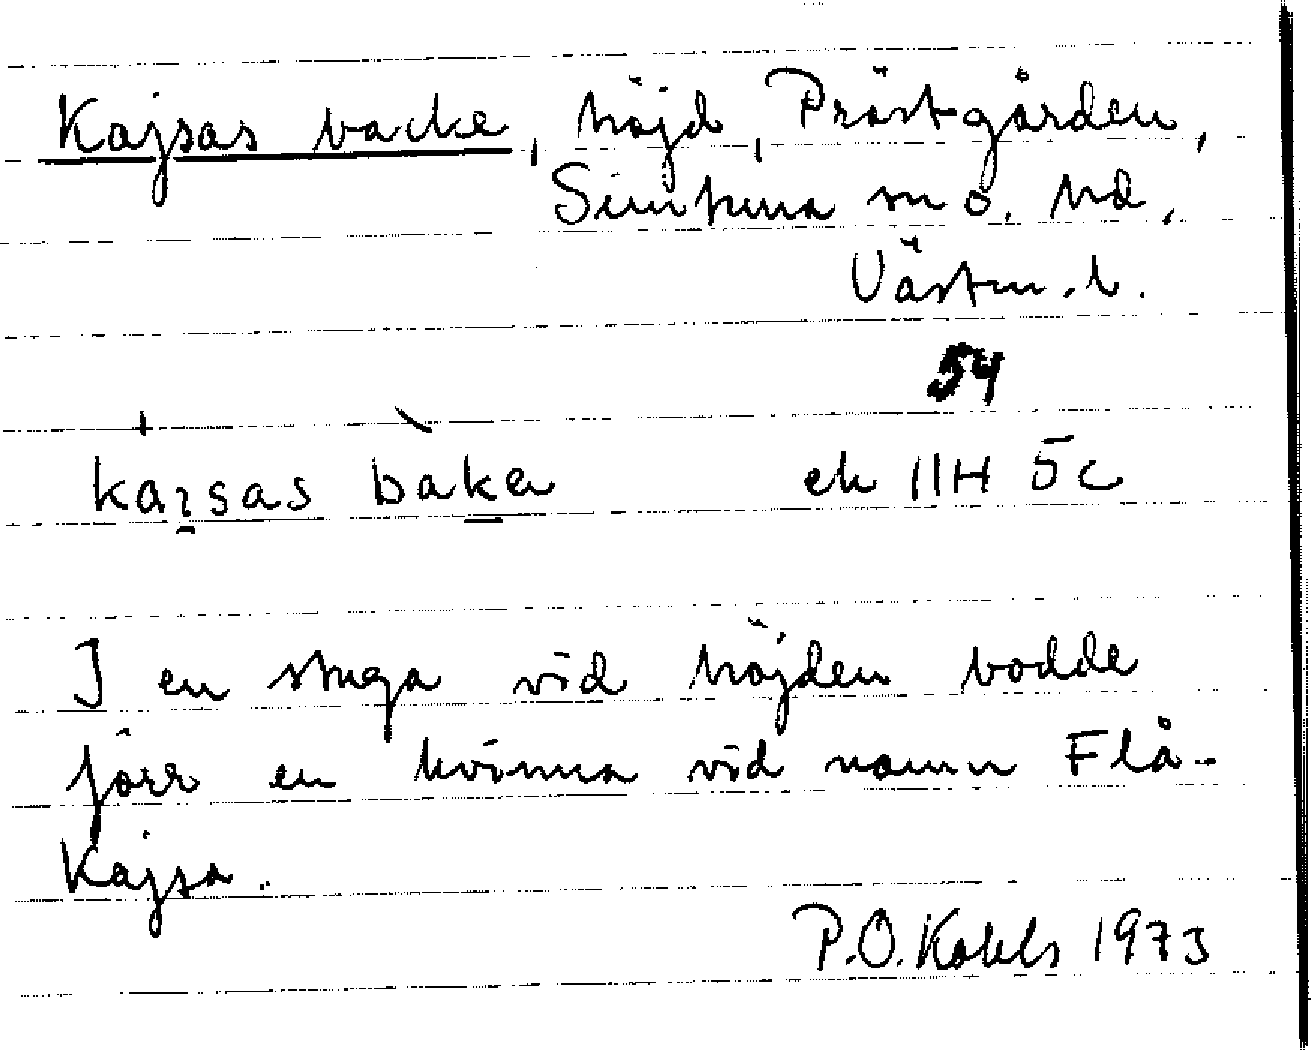 Kajsas backe, höjd, Prästgården,
Simtuna sn o. hd,
Västm. l.
54
kaisas baka
ek 11H 5c
I en stuga vid höjden bodde
förr en kvinna vid namn Flå-
Kajsa.
P.O. Kahls 1973